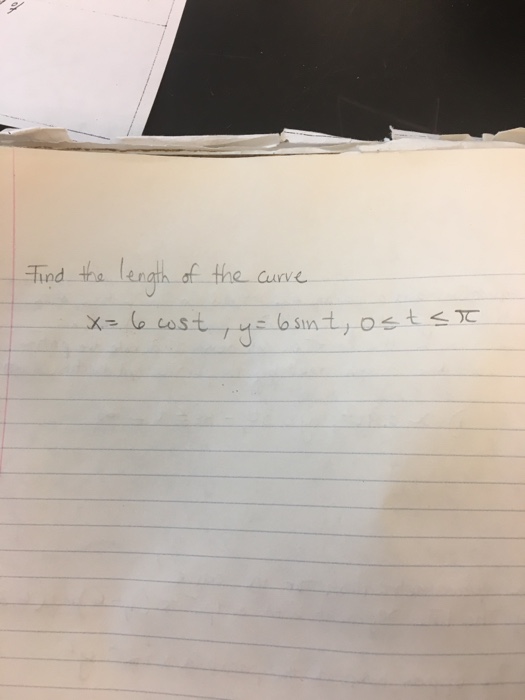 Find the length of the curve
x = 6 cos t , y = 6 sin t, 0 ≤ t ≤ π